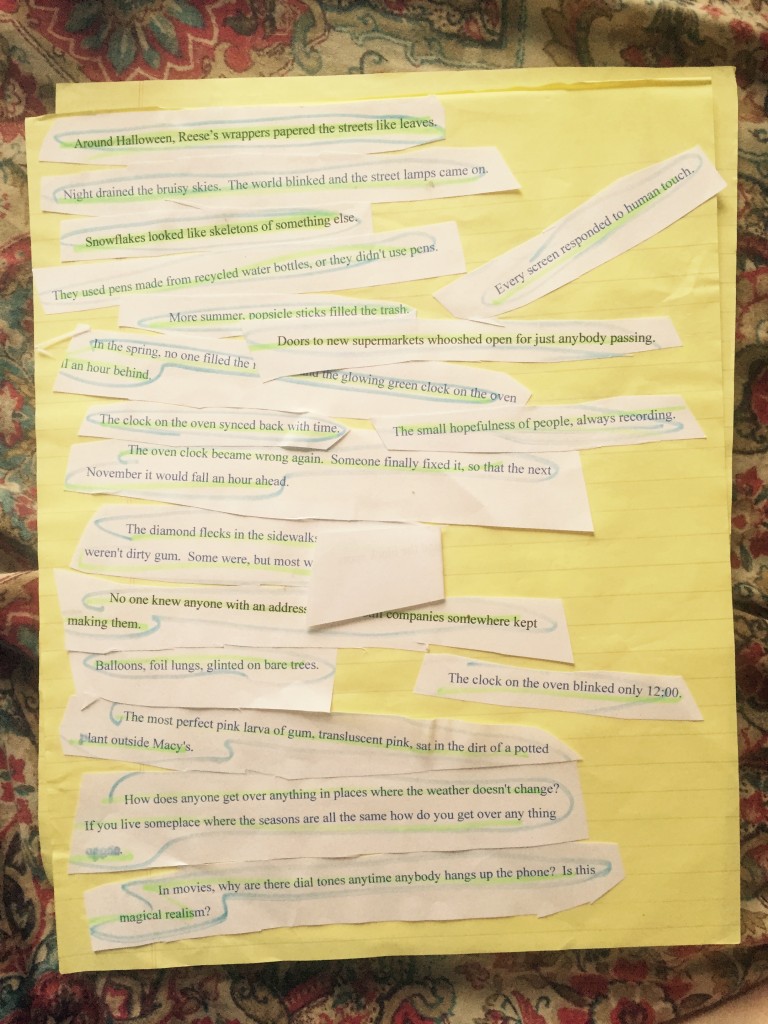 Around Halloween, Reese's wrappers papered the streets like leaves.
Night drained the bruisy skies. The world blinked and the street lamps came on.
Every screen responded to human touch.
Snowflakes looked like skeletons of something else.
They used pens made from recycled water bottles, or they didn't use pens.
More summer, popsicle sticks filled the trash.
Doors to new supermarkets whooshed open for just anybody passing.
In the spring, no one filled the
the glowing green clock on the oven
an hour behind.
The clock on the oven synced back with time.
The small hopefulness of people, always recording.
The oven clock became wrong again. Someone finally fixed it, so that the next
November it would fall an hour ahead.
The diamond flecks in the sidewalks
weren't dirty gum. Some were, but most w
No one knew anyone with an address
companies somewhere kept
making them.
Balloons, foil lungs, glinted on bare trees.
The clock on the oven blinked only 12:00.
The most perfect pink larva of gum, transluscent pink, sat in the dirt of a potted
plant outside Macy's.
How does anyone get over anything in places where the weather doesn't change?
If you live someplace where the seasons are all the same how do you get over any thing
In movies, why are there dial tones anytime anybody hangs up the phone? Is this
magical realism?